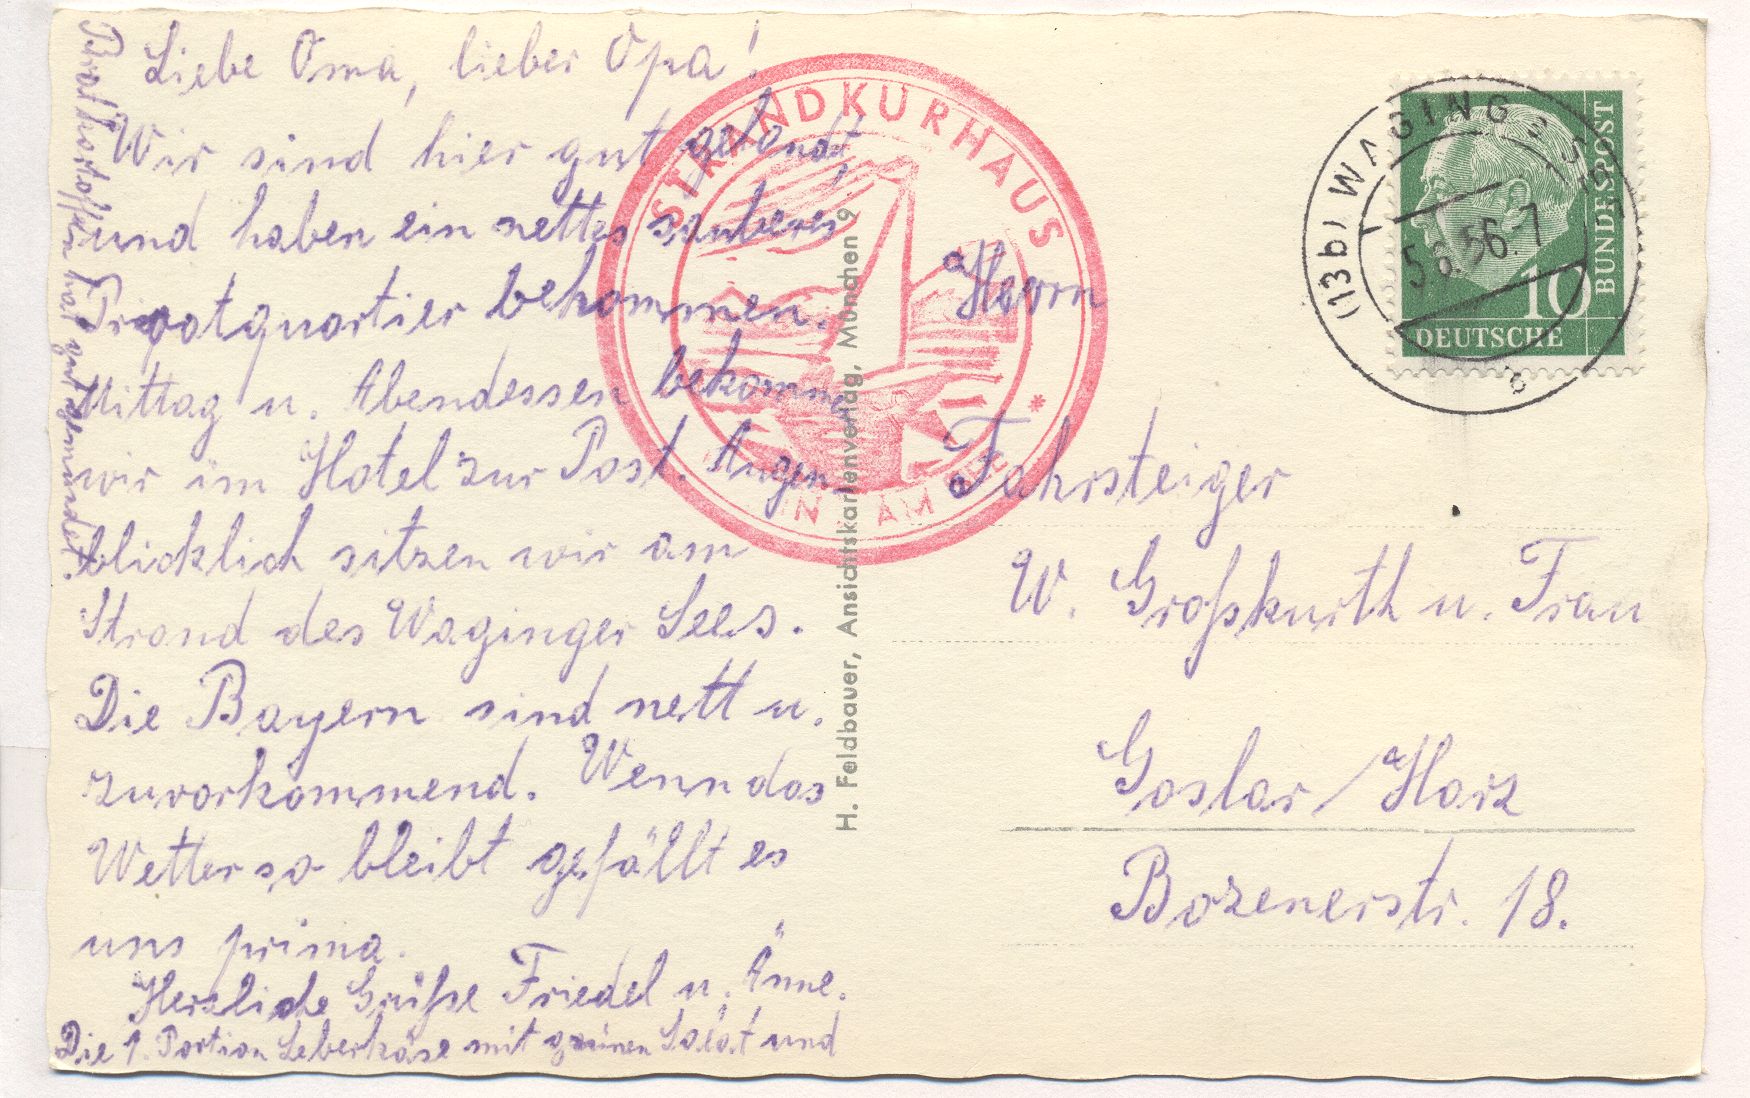 Liebe Oma, lieber Opa!
Wir sind hier gut gelandet,
und haben ein nettes sauberes
Privatquartier bekommen.
Mittag u. Abendessen bekommen
wir im Hotel zur Post. Augen-
blicklich sitzen wir am
Strand des Waginger Sees.
Die Bayern sind nett u.
zuvorkommend. Wenn das
Wetter so bleibt gefällt es
uns prima.
Herzliche Grüße Friedel u. Änne.
Die 1. Portion Leberkäse mit grünen Salat und
Bratkartoffeln hat gut gemundet.
STRANDKURHAUS
AM SEE
H. Feldbauer, Ansichtskartenverlag, München 9
(13b) WAGING
5.6.56.-7
10
DEUTSCHE
BUNDESPOST
Herrn
Fahrsteiger
W. Großkurth u. Frau
Goslar/Harz
Bozenerstr. 18.